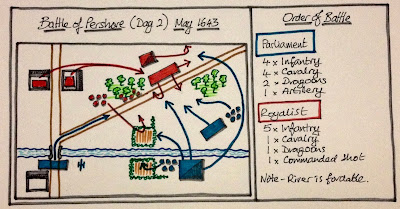 Battle of Pershore (Day 2) May 1643
Order of Battle
Parliament
4 x Infantry
4 x Cavalry
2 x Dragoons
1 x Artillery
Royalist
5 x Infantry
1 x Cavalry
1 x Dragoons
1 x Commanded Shot
Note - River is fordable.